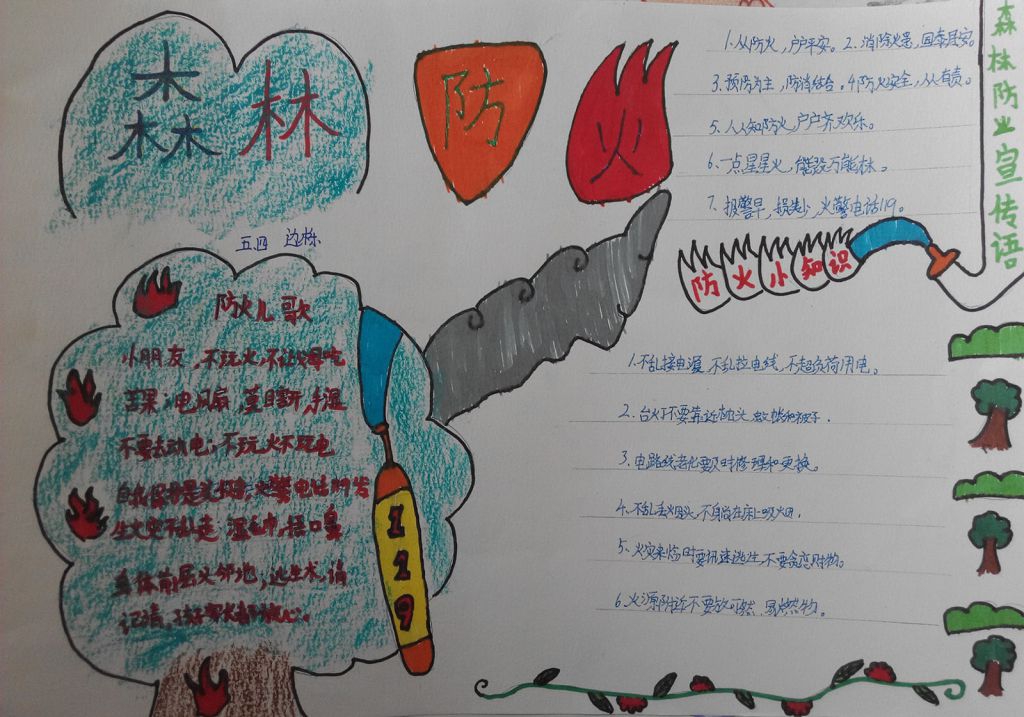 森林
防
火
五四 边栎
1.人人防火,户户平安。2.消除火患,国泰民安。
3.预防为主,防消结合。4.防火安全,人人有责。
5.人人知防火,户户齐欢乐。
6.一点星星火,能毁万亩林。
7.报警早,损失少,火警电话119。
森林防火宣传语
防火小知识
1.不乱接电源,不乱拉电线,不超负荷用电。
2.台灯不要靠近枕头
3.电路线老化要及时修理和更换。
4.不乱丢烟头,不躺在床上吸烟。
5.火灾来临时要迅速逃生,不要贪恋财物。
6.火源附近不要放可燃、易燃物。
防火儿歌
小朋友,不玩火,不让嘴吃
苦果;电风扇
不要去动电;不玩火不玩电
火警电话119
生火灾不乱走 湿毛巾,捂口鼻
请
记清
119